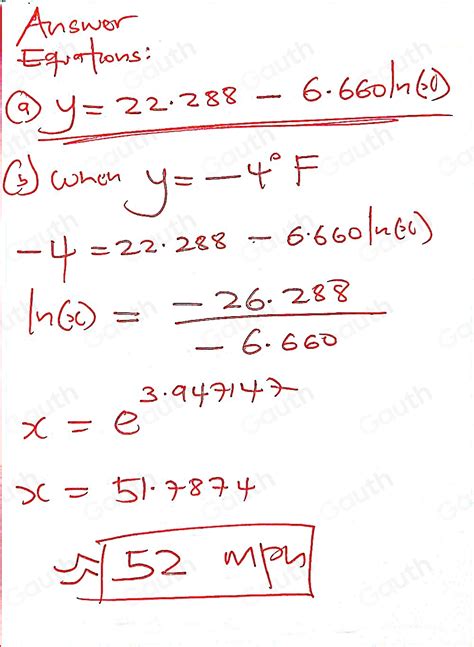 Answer
Equations:
(a) y = 22.288 - 6.660 ln(x)
(b) when y = -4° F
-4 = 22.288 - 6.660 ln(x)
ln(x) = -26.288 / -6.660
x = e^3.947147
x = 51.7874
≈ 52 mph
Gauth